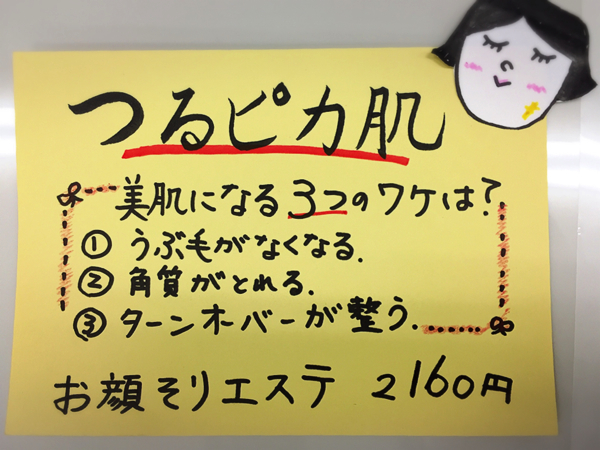 つるピカ肌
美肌になる3つのワケは?
① うぶ毛がなくなる.
② 角質がとれる.
③ ターンオーバーが整う.
お顔そりエステ 2160円